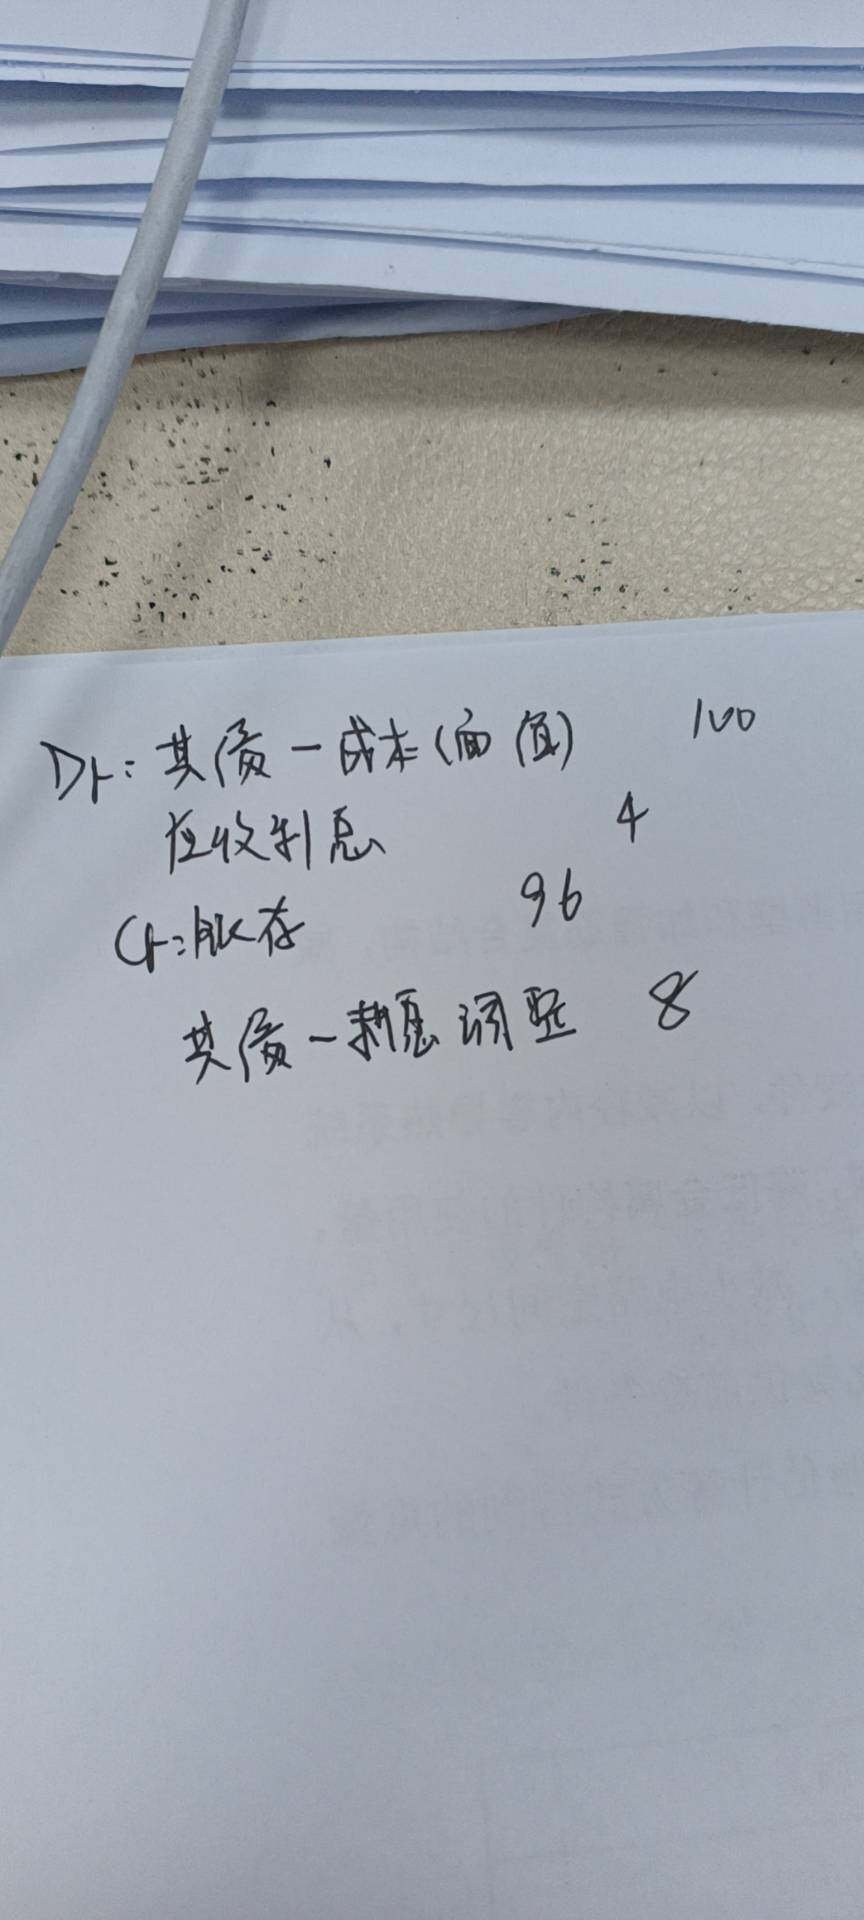 Dr: 其债-成本(面值) 100
应收利息 4
Cr: 银存 96
其债-利息调整 8